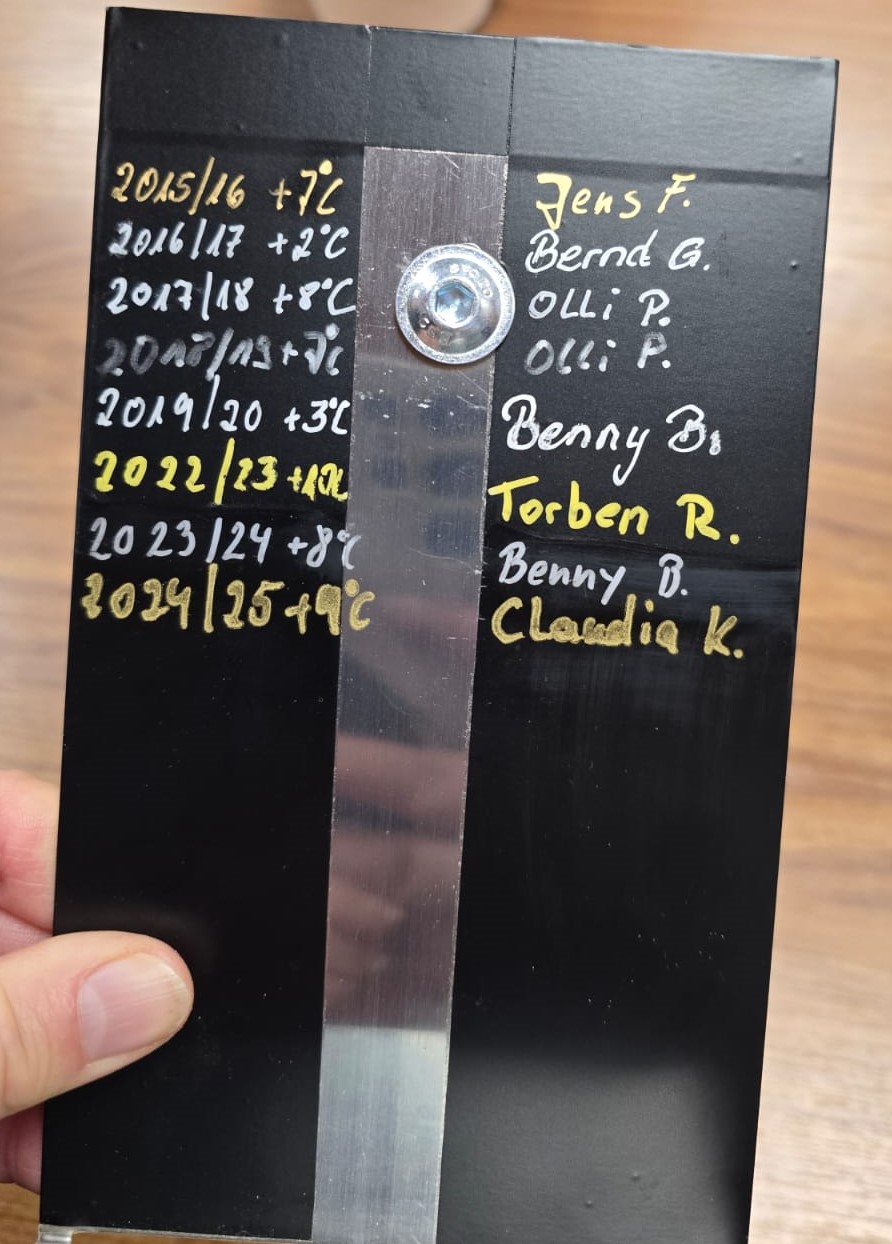 2015/16 +7°C Jens F.
2016/17 +2°C Bernd G.
2017/18 +8°C Olli P.
2018/19 +7°C Olli P.
2019/20 +3°C Benny B.
2022/23 Torben R.
2023/24 +8°C Benny B.
2024/25 +9°C Claudia K.